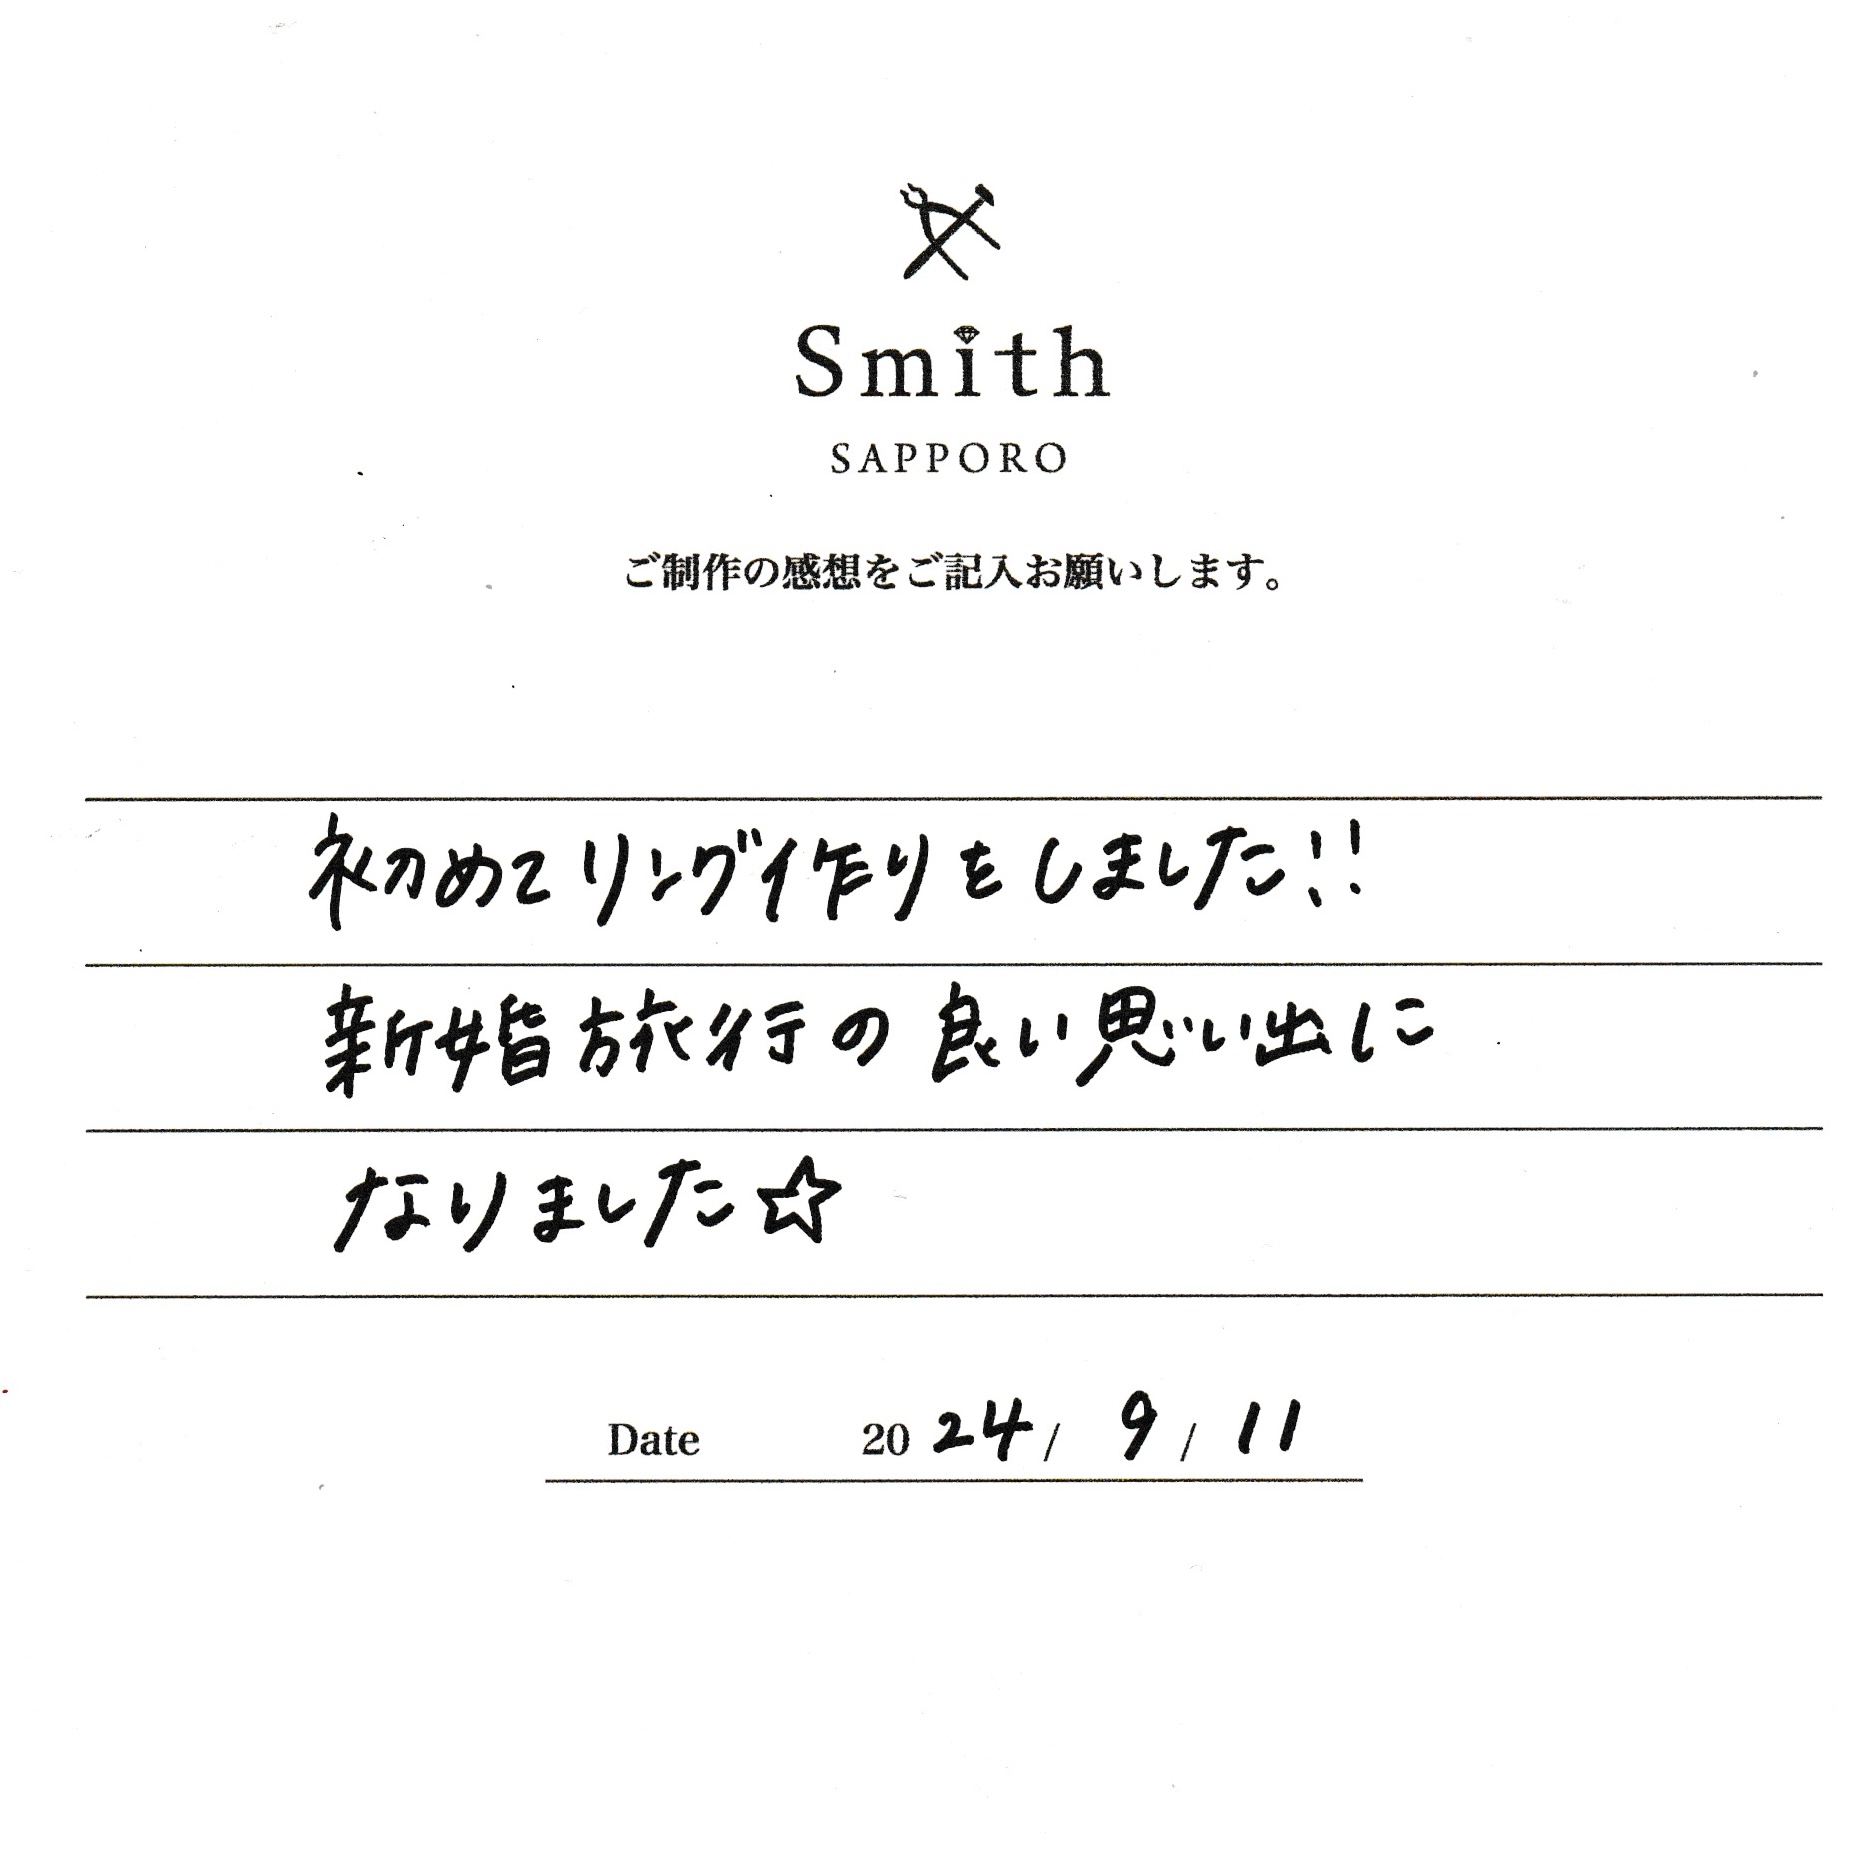 Smith
SAPPORO
ご制作の感想をご記入お願いします。
初めてリング作りをしました!!
新婚旅行の良い思い出に
なりました☆
Date 2024/ 9 / 11